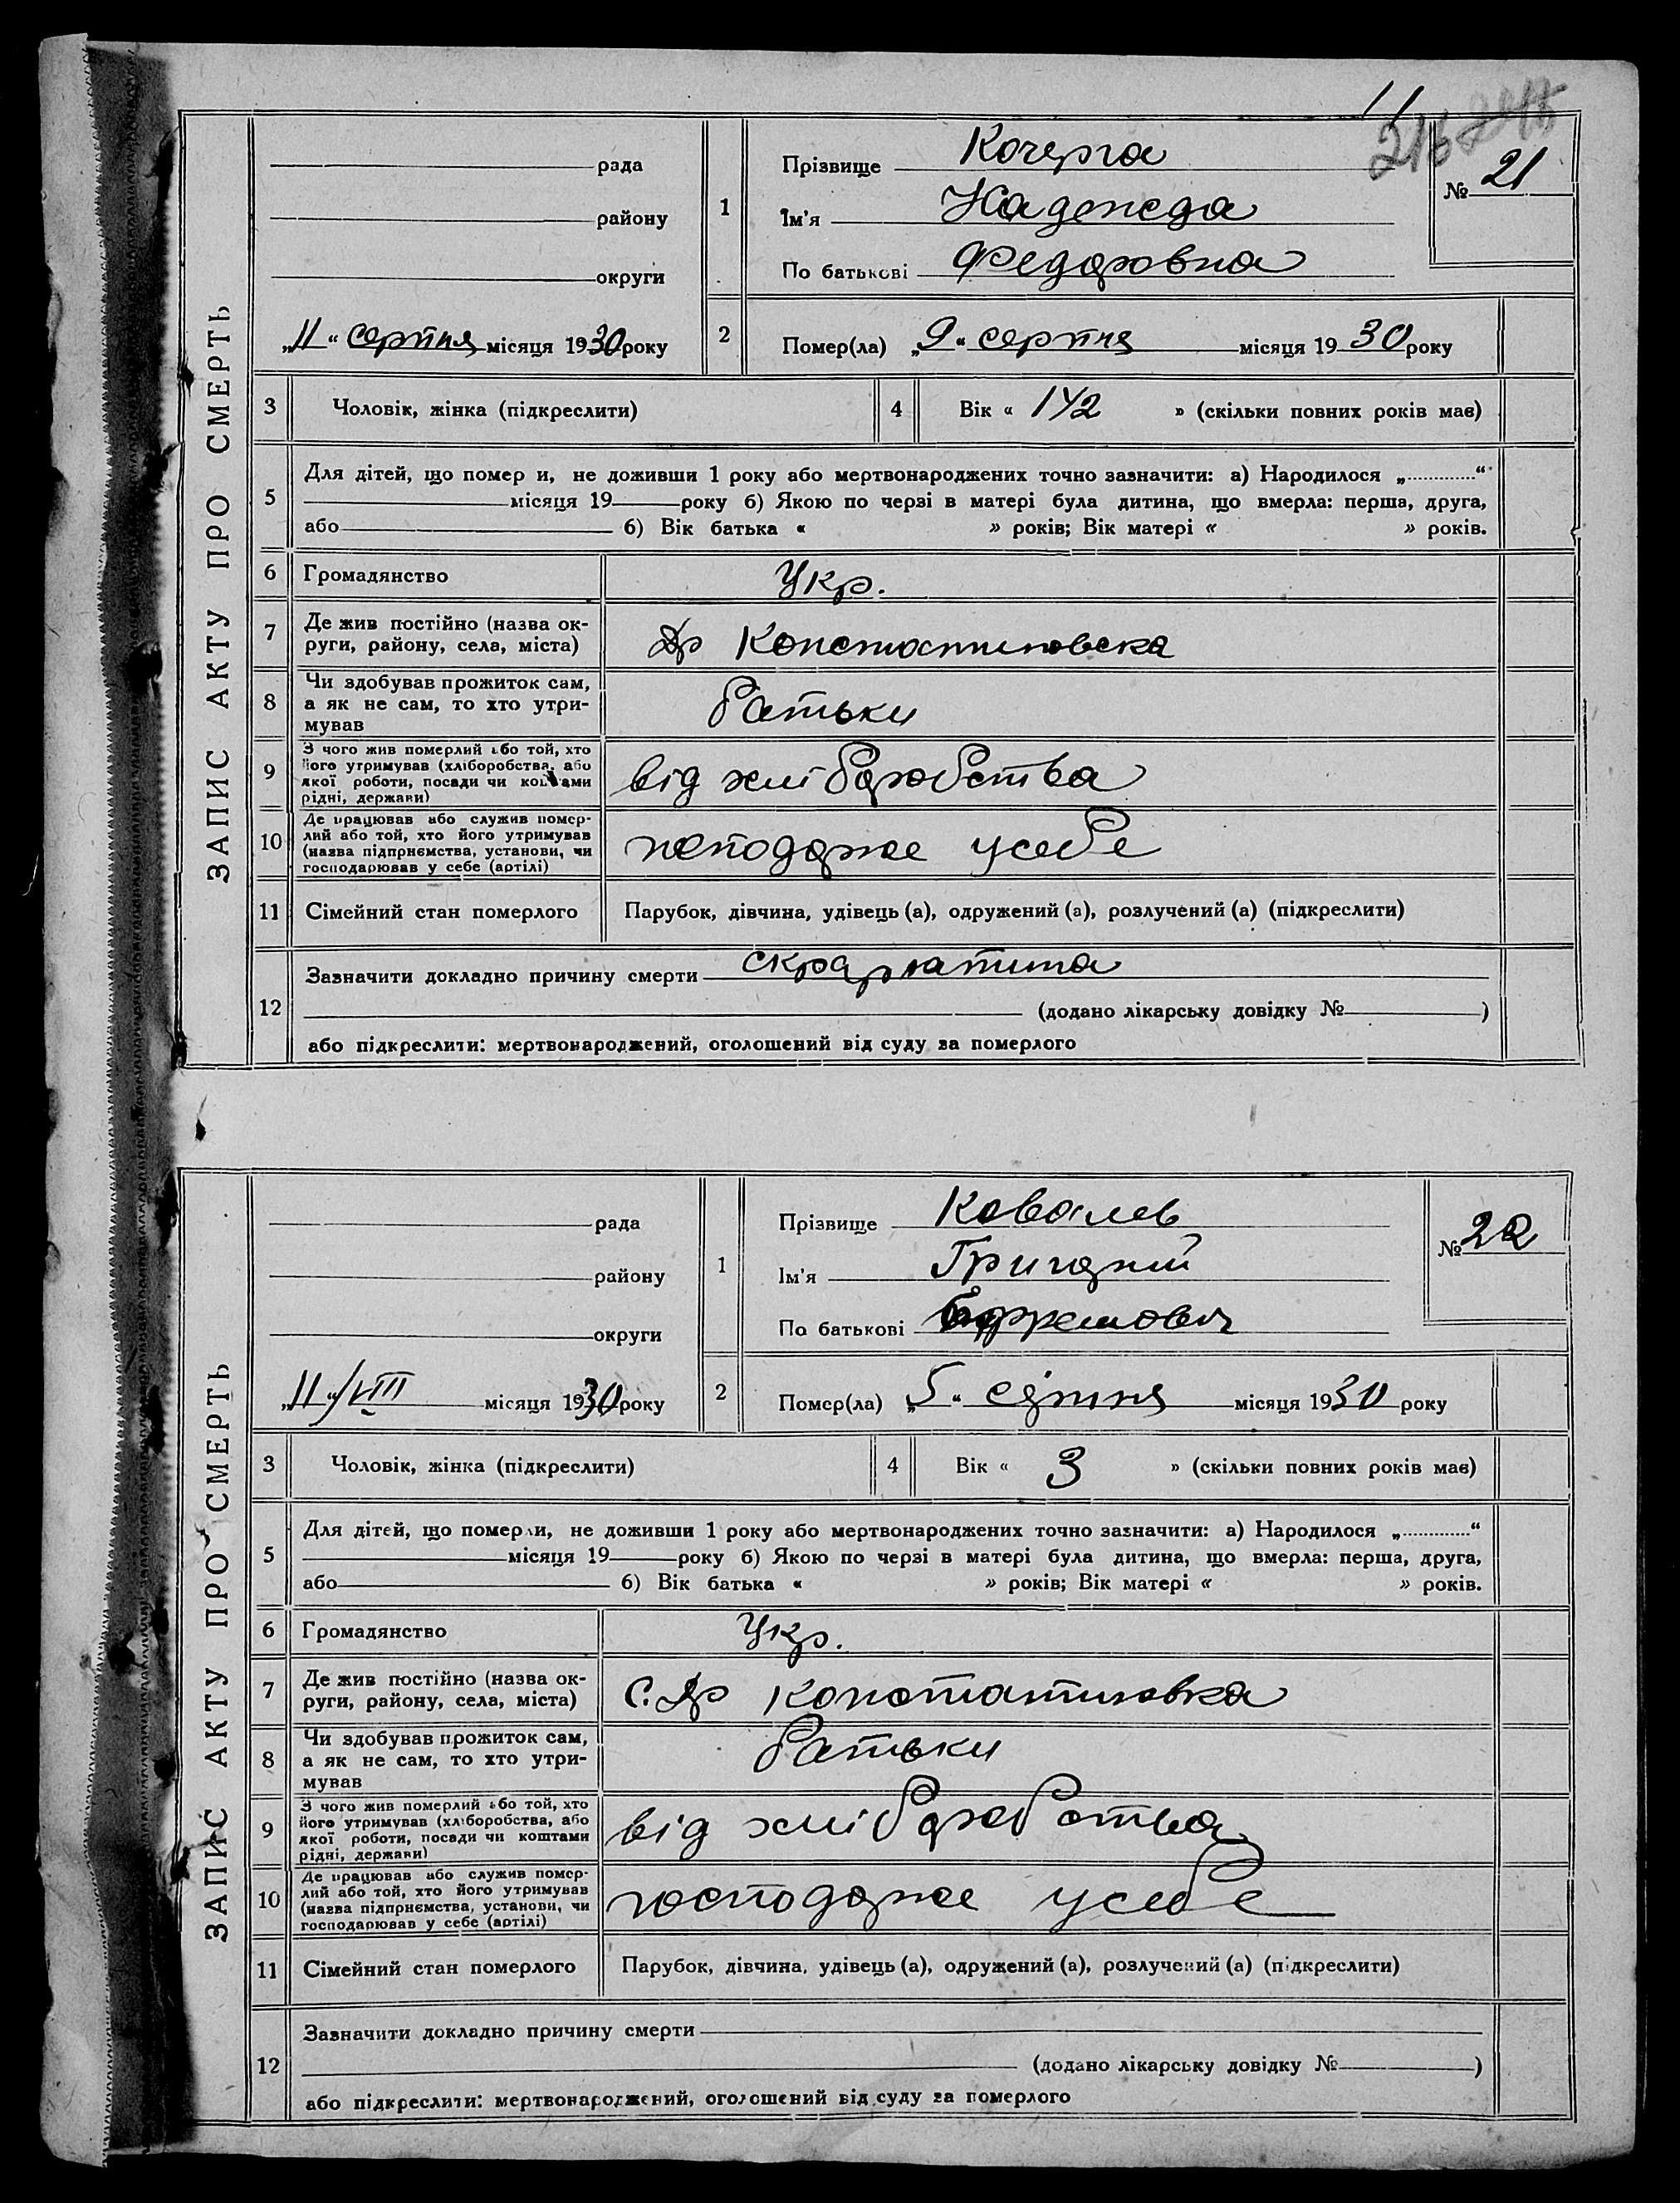 11
216
ЗАПИС АКТУ ПРО СМЕРТЬ
рада
району
округи
„11“ серпня місяця 1930 року
1
Прізвище Кочерга
Ім'я Надежда
По батькові Федоровна
№ 21
2
Помер(ла) „9“ серпня місяця 1930 року
3
Чоловік, жінка (підкреслити)
4
Вік « 1 1/2 » (скільки повних років має)
5
Для дітей, що помер и, не доживши 1 року або мертвонароджених точно зазначити: а) Народилося „.............“
місяця 19 року б) Якою по черзі в матері була дитина, що вмерла: перша, друга,
або б) Вік батька « » років; Вік матері « » років.
6
Громадянство
Укр.
7
Де жив постійно (назва ок-
руги, району, села, міста)
Др Константиновска
8
Чи здобував прожиток сам,
а як не сам, то хто утри-
мував
батьки
9
З чого жив померлий або той, хто
його утримував (хліборобства, або
якої роботи, посади чи коштами
рідні, держави)
від хліборобства
10
Де працював або служив помер-
лий або той, хто його утримував
(назва підприємства, установи, чи
господарював у себе (артілі)
господарює у себе
11
Сімейний стан померлого
Парубок, дівчина, удівець (а), одружений (а), розлучений (а) (підкреслити)
12
Зазначити докладно причину смерти скарлатина
(додано лікарську довідку № )
або підкреслити: мертвонароджений, оголошений від суду за померлого
ЗАПИС АКТУ ПРО СМЕРТЬ
рада
району
округи
„11“/VIII місяця 1930 року
1
Прізвище Ковалев
Ім'я Григорий
По батькові Ефремович
№ 22
2
Помер(ла) „5“ серпня місяця 1930 року
3
Чоловік, жінка (підкреслити)
4
Вік « 3 » (скільки повних років має)
5
Для дітей, що померли, не доживши 1 року або мертвонароджених точно зазначити: а) Народилося „.............“
місяця 19 року б) Якою по черзі в матері була дитина, що вмерла: перша, друга,
або б) Вік батька « » років; Вік матері « » років.
6
Громадянство
Укр.
7
Де жив постійно (назва ок-
руги, району, села, міста)
с. Др Константиновка
8
Чи здобував прожиток сам,
а як не сам, то хто утри-
мував
батьки
9
З чого жив померлий або той, хто
його утримував (хліборобства, або
якої роботи, посади чи коштами
рідні, держави)
від хліборобства
10
Де працював або служив помер-
лий або той, хто його утримував
(назва підприємства, установи, чи
господарював у себе (артілі)
господарює у себе
11
Сімейний стан померлого
Парубок, дівчина, удівець (а), одружений (а), розлучений (а) (підкреслити)
12
Зазначити докладно причину смерти
(додано лікарську довідку № )
або підкреслити: мертвонароджений, оголошений від суду за померлого